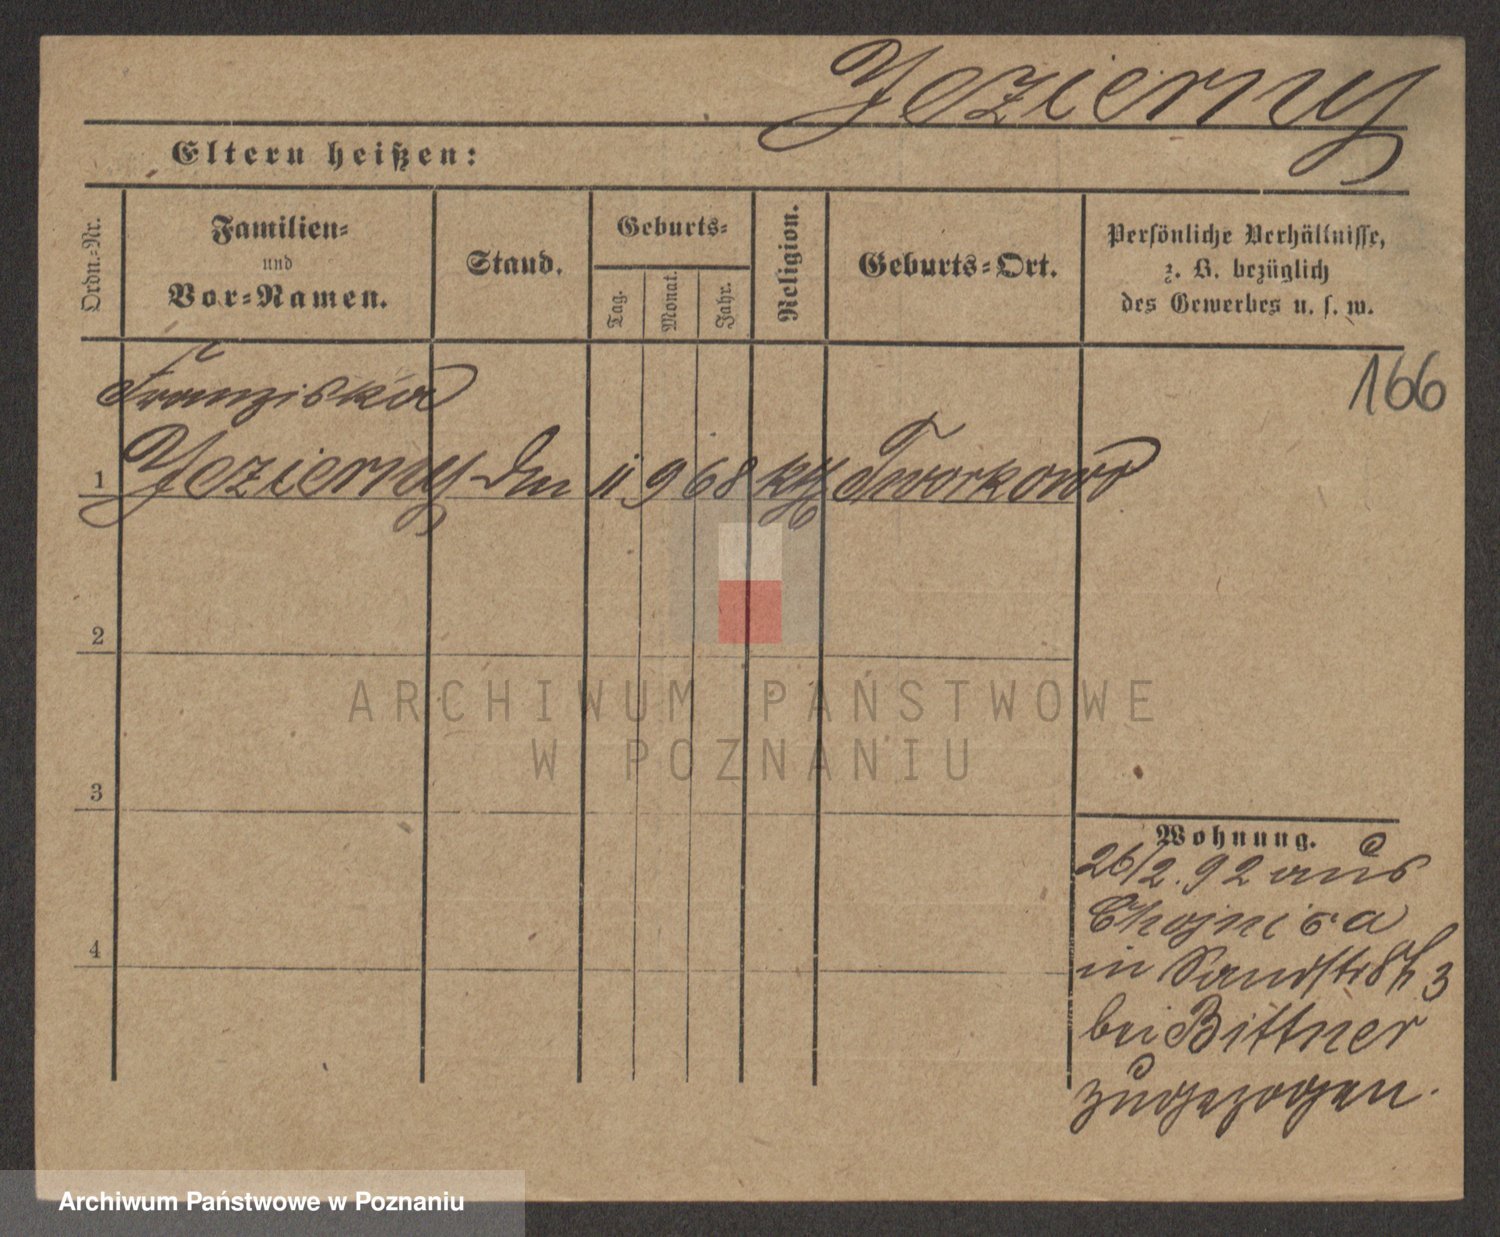 Jezierny
Eltern heißen:
Ordn.-Nr.
Familien-
und
Vor-Namen.
Stand.
Geburts-
Tag.
Monat.
Jahr.
Religion.
Geburts-Ort.
Persönliche Verhältnisse,
z. B. bezüglich
des Gewerbes u. s. w.
166
Franziska
1 Jezierny 11 9 68 kth Tworkowo
2
3
4
Wohnung.
26/2. 92 aus
Chojnica
in Sandstr 8 3
bei Bittner
zugezogen.
ARCHIWUM PAŃSTWOWE
W POZNANIU
Archiwum Państwowe w Poznaniu